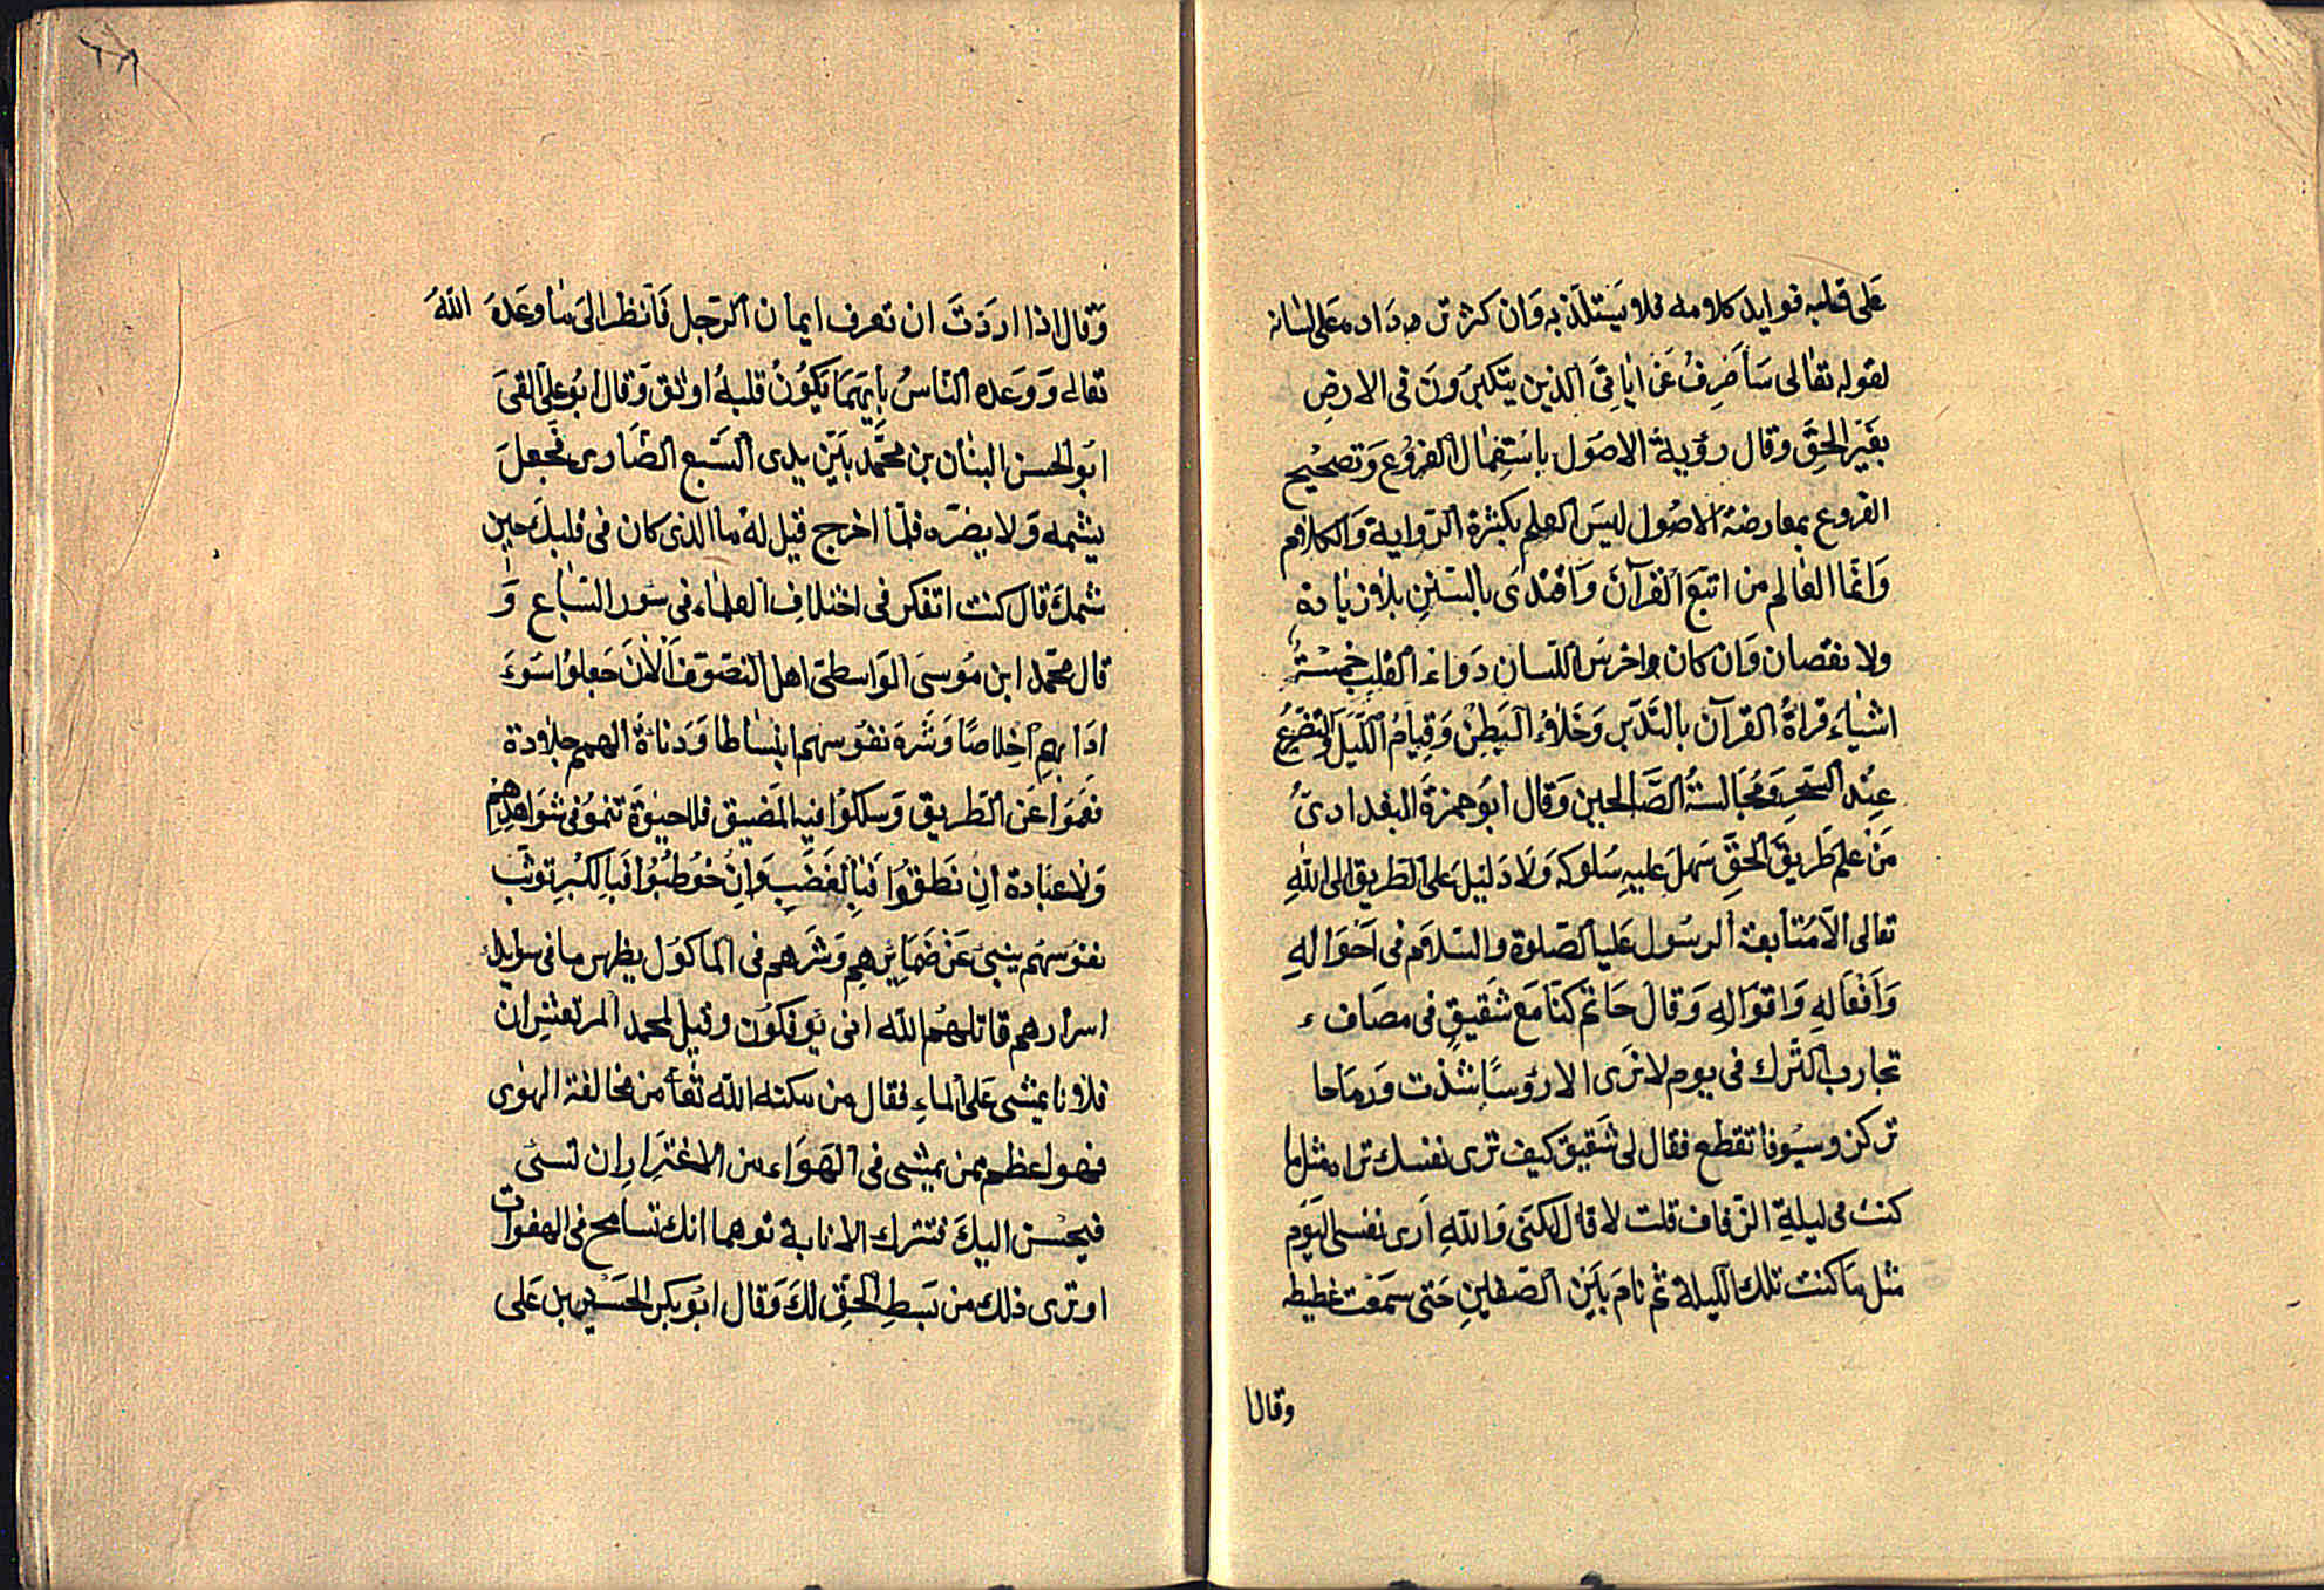 عَلى قلبه فوايد كلامه فلا يَستلّذ به وَان كثر تر دَاده عَلى لسانه
لقوله تعالى سَأصرِفُ عَن ايٰاتِىَ الذين يتكبرَونَ فى الارضِ
بغَيرِ الحِقّ وقال رؤية الاصَول باسْتِعمال الفروُع وَتصحُيح
الفروع بمعارضة الاصُول ليسَ العلم بكثرة الرّواية وَالكلام
وَانمّا العٰالم من اتبعَ القرآنَ وَاقتدَى بالسّننِ بلا زيٰادة
ولا نقصان وَان كان واخرسَ اللّسان دَواء القلبِ خمسْةُ
اشيٰاءَ قراةُ القرآن بالتّدبّر وَخَلاءُ البَطِنْ وَقِيامُ اللّيلَ وَالتضّرعُ
عِنْد السّحرِ وَمُجَالسَةُ الصّالحين وَقال ابوُ حمزةَ البغدادىُّ
مَنْ علمَ طَريقَ الحقِّ سَهلَ عليهِ سُلوكه وَلَا دَليْلَ عَلى الطّريق الى اللهِ
تعالى الّا مُتابعة الرسُول عَليه الصّلوة والسّلام فى اَحْوَالهِ
وَاَفْعَالهِ وَاقوَالهِ وَقالَ حَاتم كنّا مَعَ شَقيقٍ فى مصَاف ء
تجارب التّرك فى يوم لا نَرَى الا رؤسًا شذت وَرمَاحا
تركز وسيُوفا تقطع فقال لى شَقيق كيف ترى نفسك تراه مثل ما
كنتَ فى ليلةِ الزّفاف قلت لا قال لكنّى وَاللّهِ اَرى نفسى اليَوم
مثل مَا كنت تلك الّليلة ثم نامَ بَيْن الصّفينِ حَتى سَمعْت غطيطه
وقالا
وَقال اذا اردَتَ ان تعرف ايمان الرّجل فَانظر الىَ مٰا وعَدهَ اللّهُ
تعالى وَوَعَده النّاسُ بايّهمَا يَكوُنُ قلبهُ اوثق وَقال ابوُ علىّ القىَ
ابوُ الحسن البنٰان بن محمَّد بَيْن يدى السَّبع الضّارى فجَعلَ
يشمه وَلا يضرّه فلمّا اخرج قيل له ما الذى كان فى قلبكَ حين
شمكَ قال كنت اتفكر فى اختلافِ العلمٰاء فى سَور السّبٰاع وَ
قال محمّد ابن مُوسىَ الوَاسطىّ اهل التصّوّف الْاٰنَ جَعلوُا سَوءَ
ادَابهِم اخِلاصًا وَشَرَهَ نفوُسهم ابنسٰاطا وَدنَاءَةَ الهمم جلادة
فعَموَا عَن الطّريق وَسلكوُا فيه المَضيق فلا حيوٰةَ تنموُ فى شوَاهِدهُم
وَلا عبَادة انِ نَطَقُوا فَبِالغَضَبِ وَانِْ خوُطبُوْا فَبِالكْبرِ توَثّب
نفوُسهُم ينبئ عَنْ ضَمَايِرهِم وَشَرهم فى الماكوُل يظهر ما فى سوايد
اسرارهم قاتلهُم اللّه انى يُوفكوُن وقيل لمحمد المرتعشِ ان
فلانا يمشى عَلى الماءِ فقال من مكنه اللّه تٰعا من مخالفة الهوٰى
فهو اعظم ممن يمشى فى الهَوَاء من الاغتِرَارِ ان تسئى
فيحسْن اليكَ فتترك الانابة توهما انك تسامح فى الهفوات
او ترى ذلك من بَسطِ الحَقّ لكَ وَقال ابوُ بكر الحسَين بن عَلى